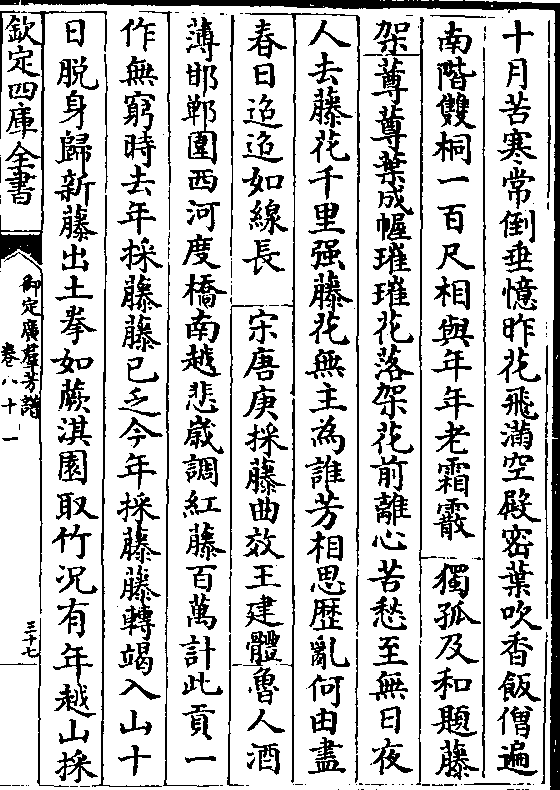 十月苦寒常倒垂憶昨花飛滿空殿密葉吹香飯僧遍
南階雙桐一百尺相與年年老霜霰　獨孤及和題藤
架蓴蓴葉成幄璀璀花落架花前離心苦愁至無日夜
人去藤花千里强藤花無主為誰芳相思歴亂何由盡
春日迢迢如線長　宋唐庚採藤曲效王建體魯人酒
薄邯鄲圍西河度橋南越悲歲調紅藤百萬計此貢一
作無窮時去年採藤藤已乏今年採藤藤轉竭入山十
日脱身歸新藤出土拳如蕨淇園取竹况有年越山採
欽定四庫全書
御定廣羣芳譜
卷八十一
三十七